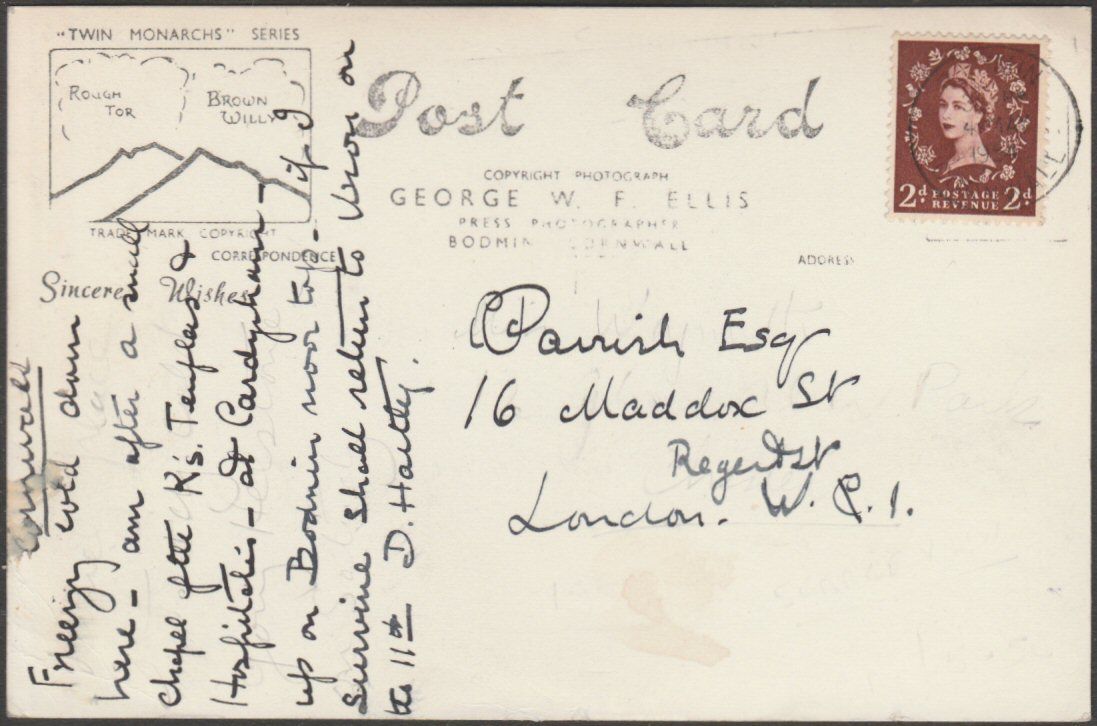 "TWIN MONARCHS" SERIES
ROUGH TOR
BROWN WILLY
TRADE MARK COPYRIGHT
CORRESPONDENCE
Sincere Wishes
Post Card
COPYRIGHT PHOTOGRAPH
GEORGE W. F. ELLIS
PRESS PHOTOGRAPHER
BODMIN CORNWALL
ADDRESS
2d POSTAGE REVENUE 2d
Cornwall
Freezing cold down
here - am after a small
chapel of the K's. Templas &
Hospitalis - at Cardynham -
up on Bodmin moor top - if I
survive shall return to London on
the 11th D. Hartley.
Parrish Esq
16 Maddox St
Regent St
London. W.C.1.